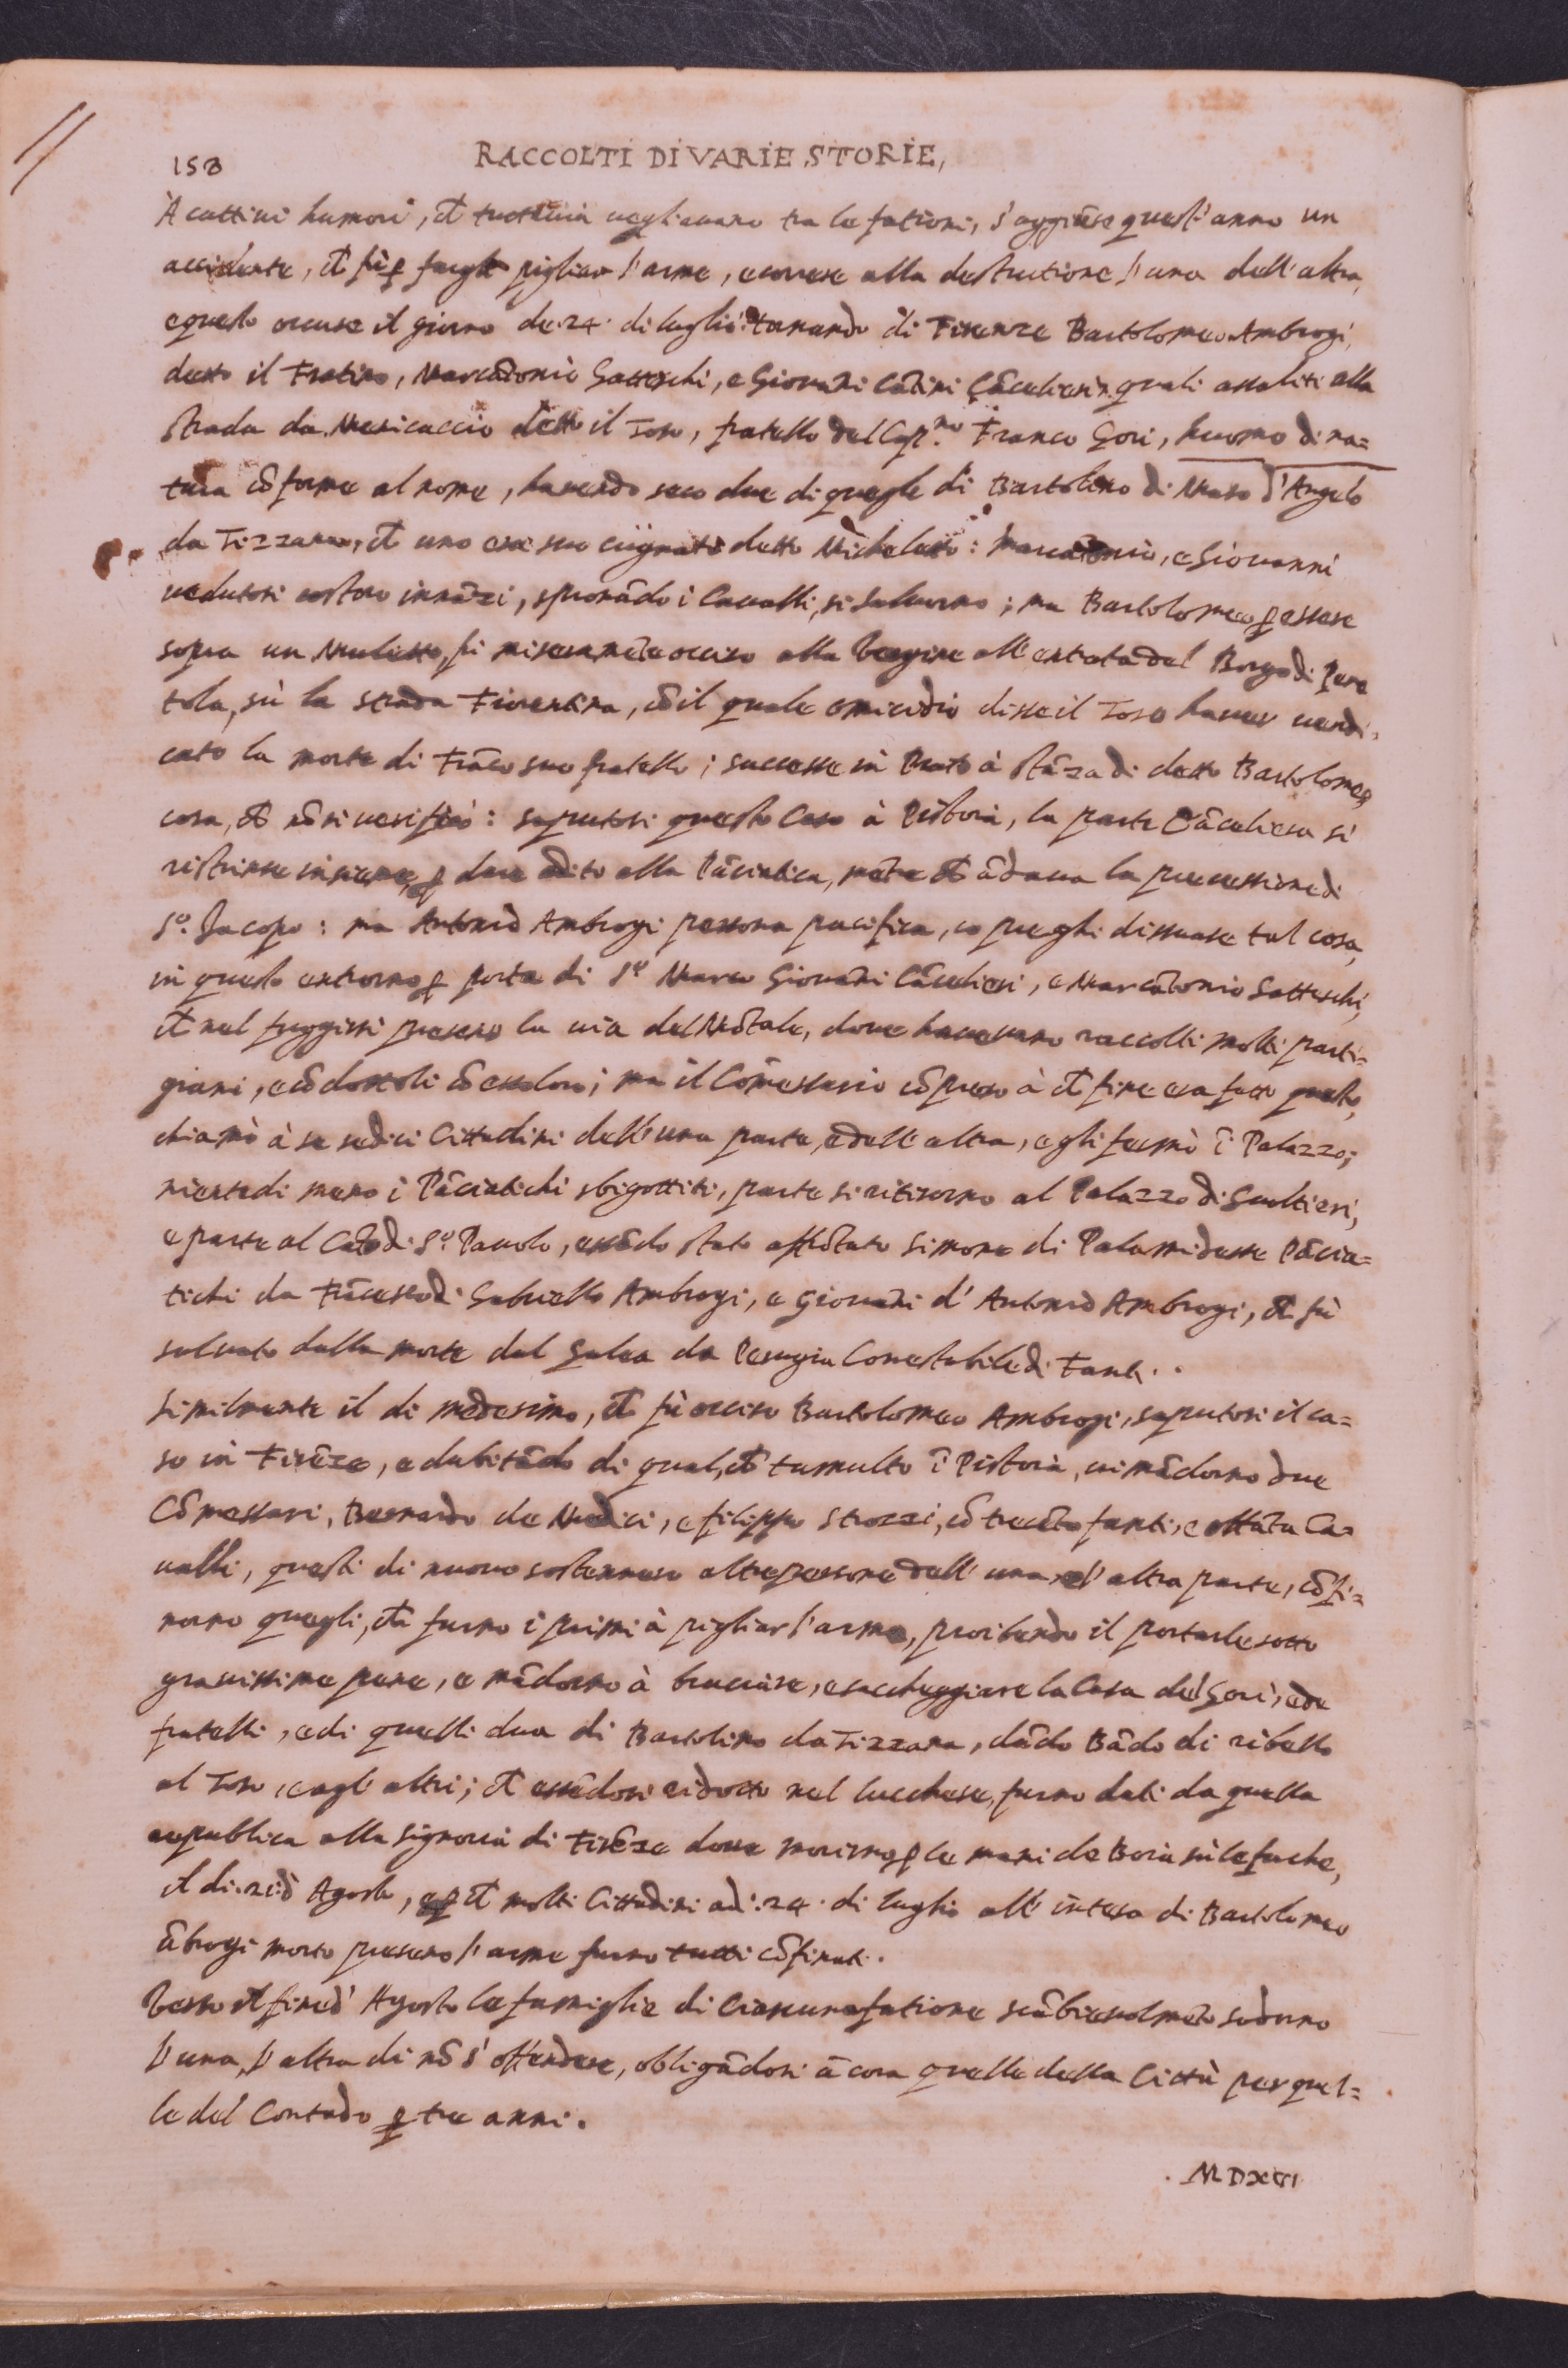 158
RACCOLTI DI VARIE STORIE,
A cattiui humori, ch̃ tuttauia uegliauano tra le fationi, s'aggiũse quest'anno un
accidente, ch̃ fù ꝑ fargli pigliar l'arme, e correre alla destrutione l'una dell'altra,
e questo occurse il giorno de. 24. di luglio: tornando di Firenze Bartolomeo Ambrogi,
detto il Fratino, Marcãtonio Gatteschi, e Giouãni Cãcelieri quali assaliti alla
strada da Menicuccio detto il Toso, fratello del Cap.no Franco Gori, huomo di na=
tura cõforme al nome, hauendo seco due di quegli di Bartolino di Maso d'Angelo
da Tizzana, ch̃ uno era suo cugnato detto Micheletto: Marcãtonio, e Giouanni
uedutosi costoro innãzi, spronãdo i Caualli, si saluorno; ma Bartolomeo ꝑ essere
sopra un Muletto, fù miseramẽte occiso alla Vergine all'entrata del Borgo di Pere
tola, sù la strada Fiorentina, cõ il quale omicidio disse il Toso hauer uendi,
cato la morte di Frãco suo fratello; successe in Prato à stãza di detto Bartolomeo
cosa, ch̃ nõ si uerificò: saputosi questo Caso à Pistoia, la parte Cãceliera si
ristrinse insieme, ꝑ dare adito alla Pãciatica, mẽtre ch̃ ãdaua la precessione di
S.o Jacopo: ma Antonio Ambrogi persona pacifica, co preghi dissuase tal cosa,
in questo entrorno ꝑ porta di S.o Marco Giouãni Cãcelieri, e Marcãtonio Gatteschi,
ch̃ nel fuggirsi presero la uia del Mõtale, doue haueuano raccolti molti parti=
giani, e cõdottoli cõ essoloro; ma il Comessario cõpreso à ch̃ fine era fatto questo,
chiamò à se sedici Cittadini dell'una parte, e dell'altra, e gli fermò ĩ Palazzo;
nientedimeno i Pãciatichi sbigottiti, parte si ritirorno al Palazzo di Gualtieri,
e parte al Cãto di S.o Pauolo, essẽdo stato affrõtato Simone di Palamidesse Pãcia=
tichi da Frãcesco di Gabriello Ambrogi, e Giouãni d'Antonio Ambrogi, ch̃ fù
saluato dalla morte dal Galea da Perugia Conestabile di Fanti..
Similmente il di medesimo, ch̃ fù occiso Bartolomeo Ambrogi, saputosi il ca=
so in Firẽze, e dubitãdo di qualch̃ tumulto ĩ Pistoia, ui mãdorno due
Cõmessari, Bernardo de Medici, e Filippo Strozzi, cõ trecẽto fanti, e ottãta Ca=
ualli, questi di nuouo sostennero altre persone dell'una, e l'altra parte, cõfi=
norno quegli, ch̃ furno i primi à pigliar l'arme, proibendo il portarle sotto
grauissime pene, e mãdorno à bruciare, e saccheggiare la Casa del Gori, e de
fratelli, e di quelli dua di Bartolino da Tizzana, dãdo Bãdo di ribello
al Toso, e agl'altri; ch̃ essẽdosi ridotti nel lucchese, furno dati da quella
republica alla Signoria di Firẽze doue morirno ꝑ le mani de Boia sù le forche,
il di. 21. d'Agosto, e ꝑch̃ molti Cittadini adi. 24. di luglio all'intesa di Bartolomeo
Ãbrogi morto presero l'arme furno tutti cõfinati.
Verso il fine d'Agosto le famiglie di Ciascuna fatione scãbieuolmẽte sodorno
l'una, l'altra di nõ s'offendere, obligãdosi ãcora quelle della Città per quel=
le del Contado ꝑ tre anni.
. MDXVI